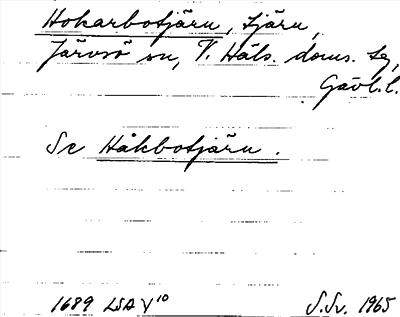 Hokarbotjärn, tjärn,
Järvsö sn, V. Häls. doms. tg,
Gävl.l.
Se Håkbotjärn.
1689 LSA V 10
S.Sv. 1965